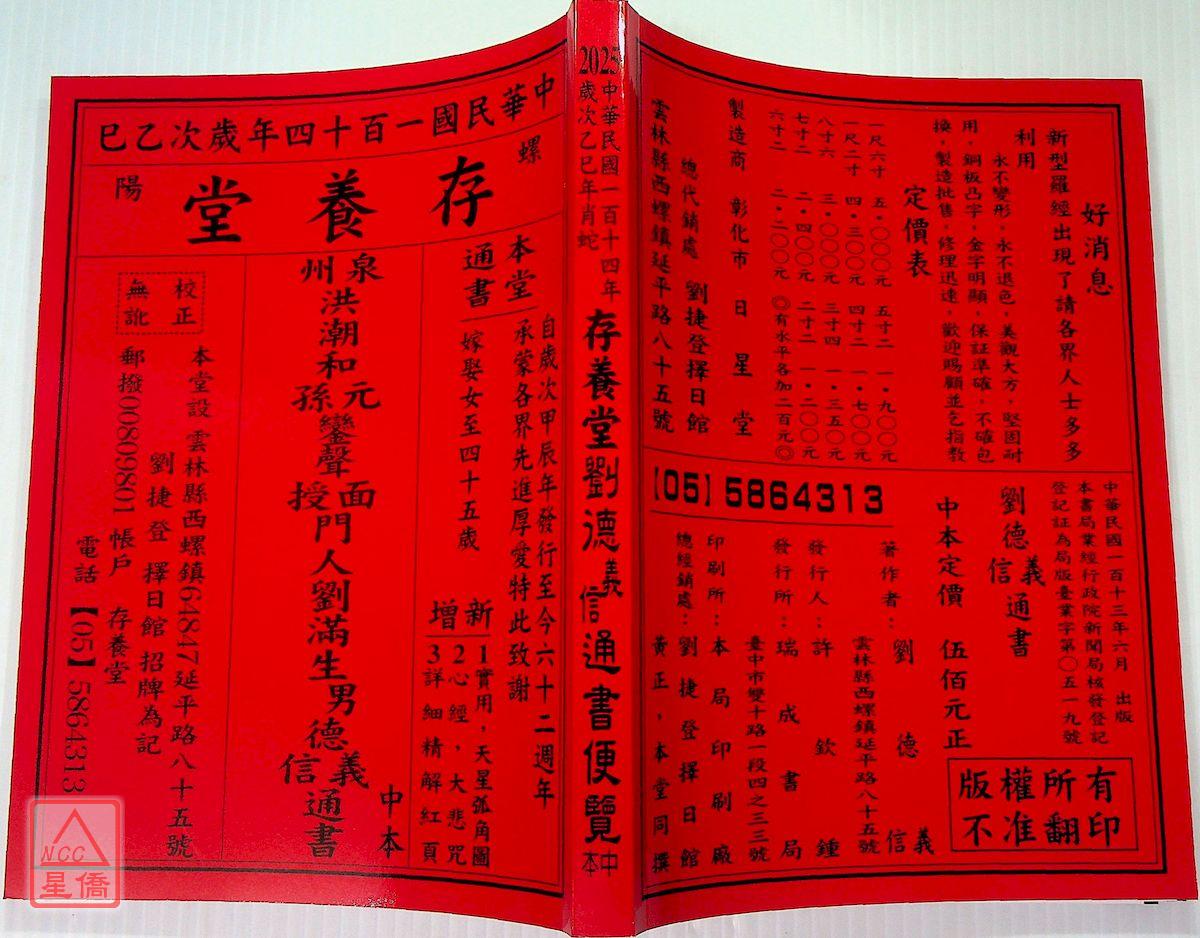 中華民國一百十四年歲次乙巳
螺陽
存養堂
本堂通書
自歲次甲辰年發行至今六十二週年
承蒙各界先進厚愛特此致謝
嫁娶女至四十五歲
新增
1實用，天星弧角圖
2心經，大悲咒
3詳細精解紅頁
泉州洪潮和
元孫鑾聲
面授門人劉滿生男德
義信通書
中本
校正無訛
本堂設雲林縣西螺鎮64847延平路八十五號
劉捷登擇日館招牌為記
郵撥00809801帳戶 存養堂
電話【05】5864313
NCC
星僑
2025
中華民國一百十四年
歲次乙巳年肖蛇
存養堂劉德義信通書便覽
中本
好消息
新型羅經出現了請各界人士多多
利用
永不變形，永不退色，美觀大方，堅固耐
用，銅板凸字，金字明顯，保証準確，不確包
換，製造批售，修理迅速，歡迎賜顧並乞指教
定價表
一尺六寸 五‧○○○元 五寸二 一‧九○○元
一尺二寸 四‧三○○元 四寸二 一‧七○○元
八寸六 三‧○○○元 三寸四 一‧三五○元
七寸二 二‧四○○元 二寸二 一‧二○○元
六寸二 二‧二○○元 ◎有水平各加二百元◎
製造商 彰化市 日星堂
總代銷處 劉捷登擇日館
雲林縣西螺鎮延平路八十五號
【05】5864313
中華民國一百十三年六月 出版
本書局業經行政院新聞局核發登記
登記証為局版臺業字第○五一九號
劉德義信通書
中本定價 伍佰元正
著作者：劉德義信
雲林縣西螺鎮延平路八十五號
發行人：許欽鐘
發行所：瑞成書局
臺中市雙十路一段四之三三號
印刷所：本局印刷廠
總經銷處：劉捷登擇日館
黃正，本堂同撰
版權所有
不准翻印